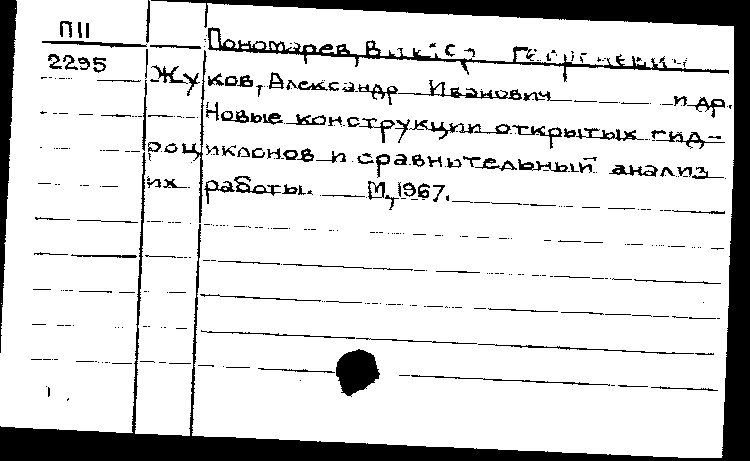 П11
2295
Пономарев, Виктор Георгиевич
Жуков, Александр Иванович и др.
Новые конструкции открытых гид-
роциклонов и сравнительный анализ
их работы. М., 1967.